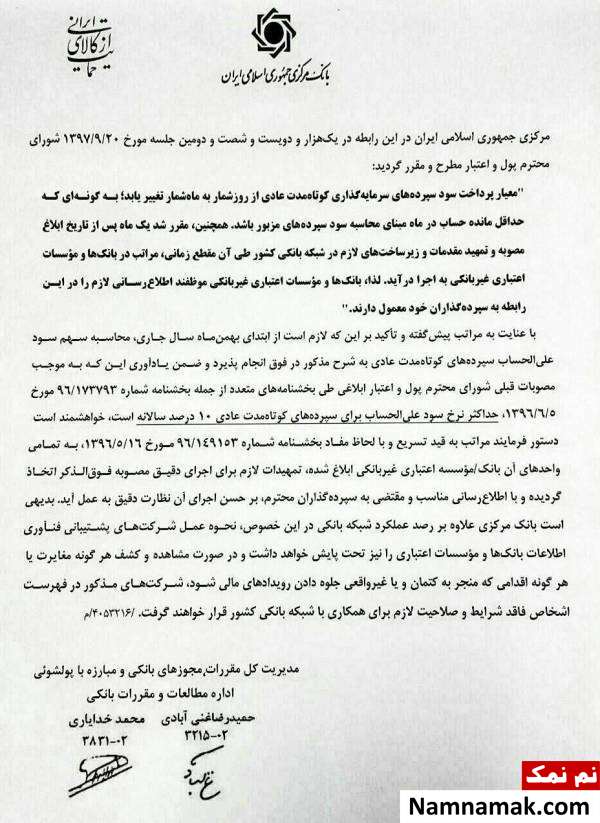 حمایت از کالای ایرانی
بانک مرکزی جمهوری اسلامی ایران
مرکزی جمهوری اسلامی ایران در این رابطه در یک‌هزار و دویست و شصت و دومین جلسه مورخ ۱۳۹۷/۹/۲۰ شورای
محترم پول و اعتبار مطرح و مقرر گردید:
"معیار پرداخت سود سپرده‌های سرمایه‌گذاری کوتاه‌مدت عادی از روزشمار به ماه‌شمار تغییر یابد؛ به گونه‌ای که
حداقل مانده حساب در ماه مبنای محاسبه سود سپرده‌های مزبور باشد. همچنین، مقرر شد یک ماه پس از تاریخ ابلاغ
مصوبه و تمهید مقدمات و زیرساخت‌های لازم در شبکه بانکی کشور طی آن مقطع زمانی، مراتب در بانک‌ها و مؤسسات
اعتباری غیربانکی به اجرا درآید. لذا، بانک‌ها و مؤسسات اعتباری غیربانکی موظفند اطلاع‌رسانی لازم را در این
رابطه به سپرده‌گذاران خود معمول دارند."
با عنایت به مراتب پیش‌گفته و تأکید بر این که لازم است از ابتدای بهمن‌ماه سال جاری، محاسبه سهم سود
علی‌الحساب سپرده‌های کوتاه‌مدت عادی به شرح مذکور در فوق انجام پذیرد و ضمن یادآوری این که به موجب
مصوبات قبلی شورای محترم پول و اعتبار ابلاغی طی بخشنامه‌های متعدد از جمله بخشنامه شماره ۹۶/۱۷۳۷۹۳ مورخ
۱۳۹۶/۶/۵، حداکثر نرخ سود علی‌الحساب برای سپرده‌های کوتاه‌مدت عادی ۱۰ درصد سالانه است، خواهشمند است
دستور فرمایند مراتب به قید تسریع و با لحاظ مفاد بخشنامه شماره ۹۶/۱۴۹۱۵۳ مورخ ۱۳۹۶/۵/۱۶، به تمامی
واحدهای آن بانک/مؤسسه اعتباری غیربانکی ابلاغ شده، تمهیدات لازم برای اجرای دقیق مصوبه فوق‌الذکر اتخاذ
گردیده و با اطلاع‌رسانی مناسب و مقتضی به سپرده‌گذاران محترم، بر حسن اجرای آن نظارت دقیق به عمل آید. بدیهی
است بانک مرکزی علاوه بر رصد عملکرد شبکه بانکی در این خصوص، نحوه عمل شرکت‌های پشتیبانی فناوری
اطلاعات بانک‌ها و مؤسسات اعتباری را نیز تحت پایش خواهد داشت و در صورت مشاهده و کشف هر گونه مغایرت یا
هر گونه اقدامی که منجر به کتمان و یا غیرواقعی جلوه دادن رویدادهای مالی شود، شرکت‌های مذکور در فهرست
اشخاص فاقد شرایط و صلاحیت لازم برای همکاری با شبکه بانکی کشور قرار خواهند گرفت. /۴۰۵۳۲۱۶/م
مدیریت کل مقررات، مجوزهای بانکی و مبارزه با پولشوئی
اداره مطالعات و مقررات بانکی
حمیدرضا غنی آبادی محمد خدایاری
۳۲۱۵-۰۲ ۳۸۳۱-۰۲
نم نمک
Namnamak.com